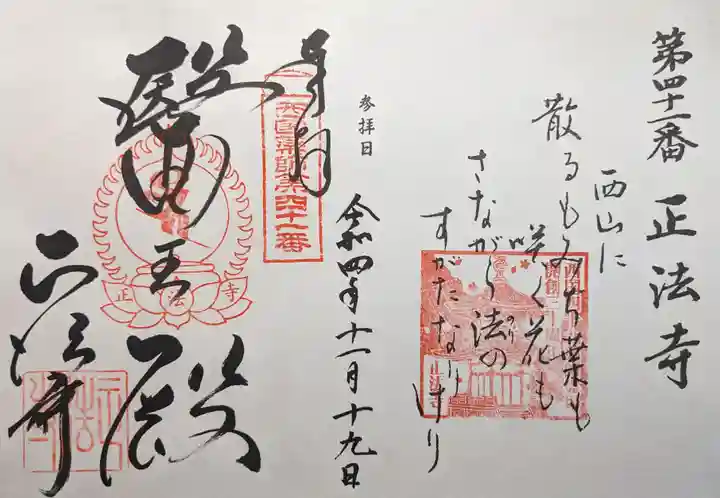 第四十一番 正法寺
西山に
散るもみぢ葉も
咲く花も
さながら法の
のり
すがたなりけり
参拝日
令和四年十一月十九日
奉拝
西国薬師第四十一番
醫王殿
正法寺
正法寺
正法寺